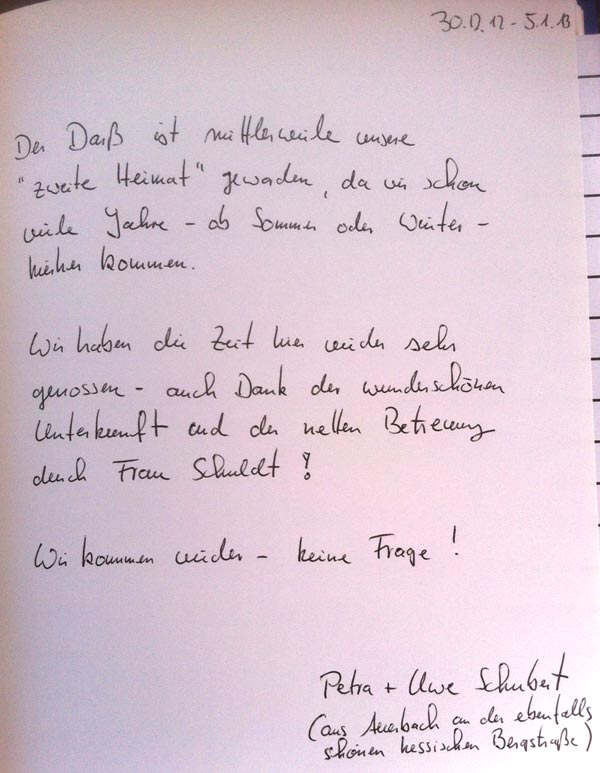 30.12.12 - 5.1.13
Der Darß ist mittlerweile unsere
"zweite Heimat" geworden, da wir schon
viele Jahre - ob Sommer oder Winter -
hierher kommen.
Wir haben die Zeit hier wieder sehr
genossen - auch Dank der wunderschönen
Unterkunft und der netten Betreuung
durch Frau Schuldt!
Wir kommen wieder - keine Frage!
Petra + Uwe Schubert
(aus Auerbach an der ebenfalls
schönen hessischen Bergstraße)